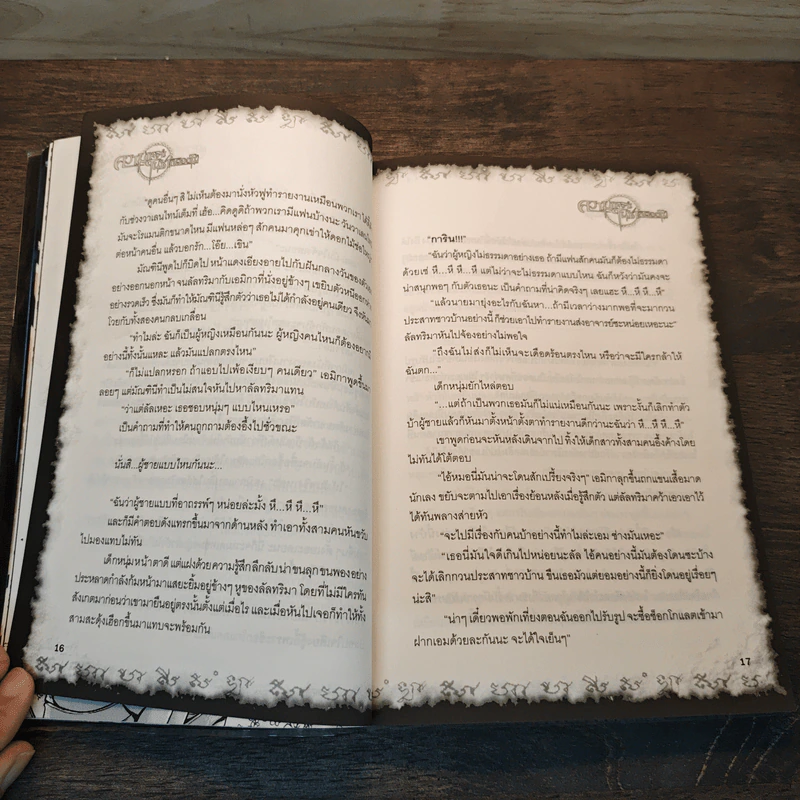 "ดูคนอื่นๆ สิ ไม่เห็นต้องมานั่งหัวฟูทำรายงานเหมือนพวกเรา
กับช่วงวาเลนไทน์เต็มที่ เฮ้อ...คิดดูดิถ้าพวกเรามีแฟนบ้างนะ
มันจะโรแมนติกขนาดไหน มีแฟนหล่อๆ สักคนมาคุกเข่าให้ดอกไม้
ต่อหน้าคนอื่น แล้วบอกรัก...โอ๊ย...เขิน"
มัณฑินีพูดไปก็บิดไป หน้าแดงเอียงอายไปกับฝันกลางวันของ
อย่างออกนอกหน้า จนลัลทริมากับเอมิกาที่นั่งอยู่ข้างๆ เขยิบตัวหนี
อย่างรวดเร็ว ซึ่งมันก็ทำให้มัณฑินีรู้สึกตัวว่าเธอไม่ได้กำลังอยู่คนเดียว
โวยกับทั้งสองคนกลบเกลื่อน
"ทำไมล่ะ ฉันก็เป็นผู้หญิงเหมือนกันนะ ผู้หญิงคนไหนก็ต้องอยาก
อย่างนี้ทั้งนั้นแหละ แล้วมันแปลกตรงไหน"
"ก็ไม่แปลกหรอก ถ้าแอบไปเพ้อเงียบๆ คนเดียว" เอมิกาพูดขึ้น
ลอยๆ แต่มัณฑินีทำเป็นไม่สนใจหันไปหาลัลทริมาแทน
"ว่าแต่ลัลเหอะ เธอชอบหนุ่มๆ แบบไหนเหรอ"
เป็นคำถามที่ทำให้คนถูกถามต้องอึ้งไปชั่วขณะ
นั่นสิ...ผู้ชายแบบไหนกันนะ...
"ฉันว่าผู้ชายแบบที่อาถรรพ์ๆ หน่อยล่ะมั้ง หึ...หึ หึ...หึ"
และก็มีคำตอบดังแทรกขึ้นมาจากด้านหลัง ทำเอาทั้งสามคนหันขวับ
ไปมองแทบไม่ทัน
เด็กหนุ่มหน้าตาดี แต่แฝงด้วยความรู้สึกลึกลับน่าขนลุกขนพองอย่าง
ประหลาดกำลังก้มหน้ามาแสยะยิ้มอยู่ข้างๆ หูของลัลทริมา โดยที่ไม่มีใครทัน
สังเกตมาก่อนว่าเขามายืนอยู่ตรงนั้นตั้งแต่เมื่อไร และเมื่อหันไปเจอก็ทำให้ทั้ง
สามสะดุ้งเฮือกขึ้นมาแทบจะพร้อมกัน
16
"การิน!!!"
"ฉันว่าผู้หญิงไม่ธรรมดาอย่างเธอ ถ้ามีแฟนสักคนมันก็ต้องไม่ธรรมดา
ด้วยเช่ หึ...หึ หึ...หึ แต่ไม่ว่าจะไม่ธรรมดาแบบไหน ฉันก็หวังว่ามันคงจะ
น่าสนุกพอๆ กับตัวเธอนะ เป็นคำถามที่น่าคิดจริงๆ เลยแฮะ หึ...หึ หึ...หึ"
"แล้วนายมายุ่งอะไรกับฉันหา...ถ้ามีเวลาว่างมากพอที่จะมากวน
ประสาทชาวบ้านอย่างนี้ ก็ช่วยเอาไปทำรายงานส่งอาจารย์ซะหน่อยเหอะนะ"
ลัลทริมาหันไปจ้องอย่างไม่พอใจ
"ถึงฉันไม่ส่งก็ไม่เห็นจะเดือดร้อนตรงไหน หรือว่าจะมีใครกล้าให้
ฉันตก..."
เด็กหนุ่มยักไหล่ตอบ
"...แต่ถ้าเป็นพวกเธอมันก็ไม่แน่เหมือนกันนะ เพราะงั้นก็เลิกทำตัว
บ้าผู้ชายแล้วก็หันมาตั้งหน้าตั้งตาทำรายงานดีกว่านะฉันว่า หึ...หึ หึ...หึ"
เขาพูดก่อนจะหันหลังเดินจากไป ทิ้งให้เด็กสาวทั้งสามคนอึ้งค้างโดย
ไม่ทันได้โต้ตอบ
"ไอ้หมอนี่มันน่าจะโดนสักเปรี้ยงจริงๆ" เอมิกาลุกขึ้นถกแขนเสื้อมาด
นักเลง ขยับจะตามไปเอาเรื่องย้อนหลังเมื่อรู้สึกตัว แต่ลัลทริมาคว้าเอวเอาไว้
ได้ทันพลางส่ายหัว
"จะไปมีเรื่องกับคนบ้าอย่างนี้ทำไมล่ะเอม ช่างมันเหอะ"
"เธอนี่มันใจดีเกินไปหน่อยนะลัล ไอ้คนอย่างนี้มันต้องโดนซะบ้าง
จะได้เลิกกวนประสาทชาวบ้าน ขืนเธอมัวแต่ยอมอย่างนี้ก็ยิ่งโดนอยู่เรื่อยๆ
น่ะสิ"
"น่าๆ เดี๋ยวพอพักเที่ยงตอนฉันออกไปรับรูป จะซื้อช็อกโกแลตเข้ามา
ฝากเอมด้วยละกันนะ จะได้ใจเย็นๆ"
17